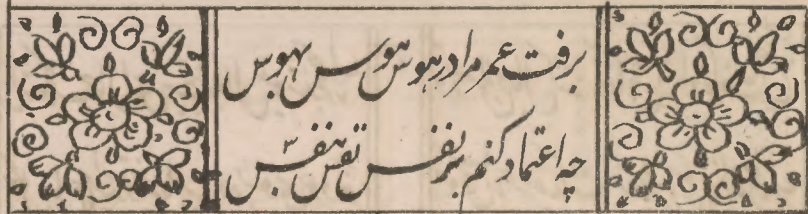 برفت عمر مرا در هوس هوس بهوس
چه اعتماد کنم بر نفس نفس بنفس